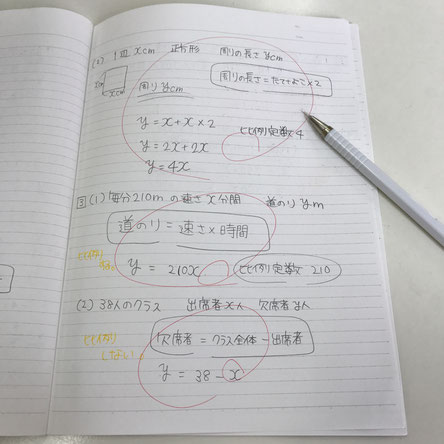 (2) 1辺 xcm 正方形 周りの長さ ycm
xcm
xcm
周りの長さ=たて+よこ×2
周り ycm
y = x + x × 2
比例定数4
y = 2x + 2x
y = 4x
3 (1) 毎分210m の速さ x分間 道のり ym
道のり = 速さ × 時間
比例
する。
y = 210x 比例定数 210
(2) 38人のクラス 出席者 x人 欠席者 y人
比例
しない。
欠席者 = クラス全体 - 出席者
y = 38 - x